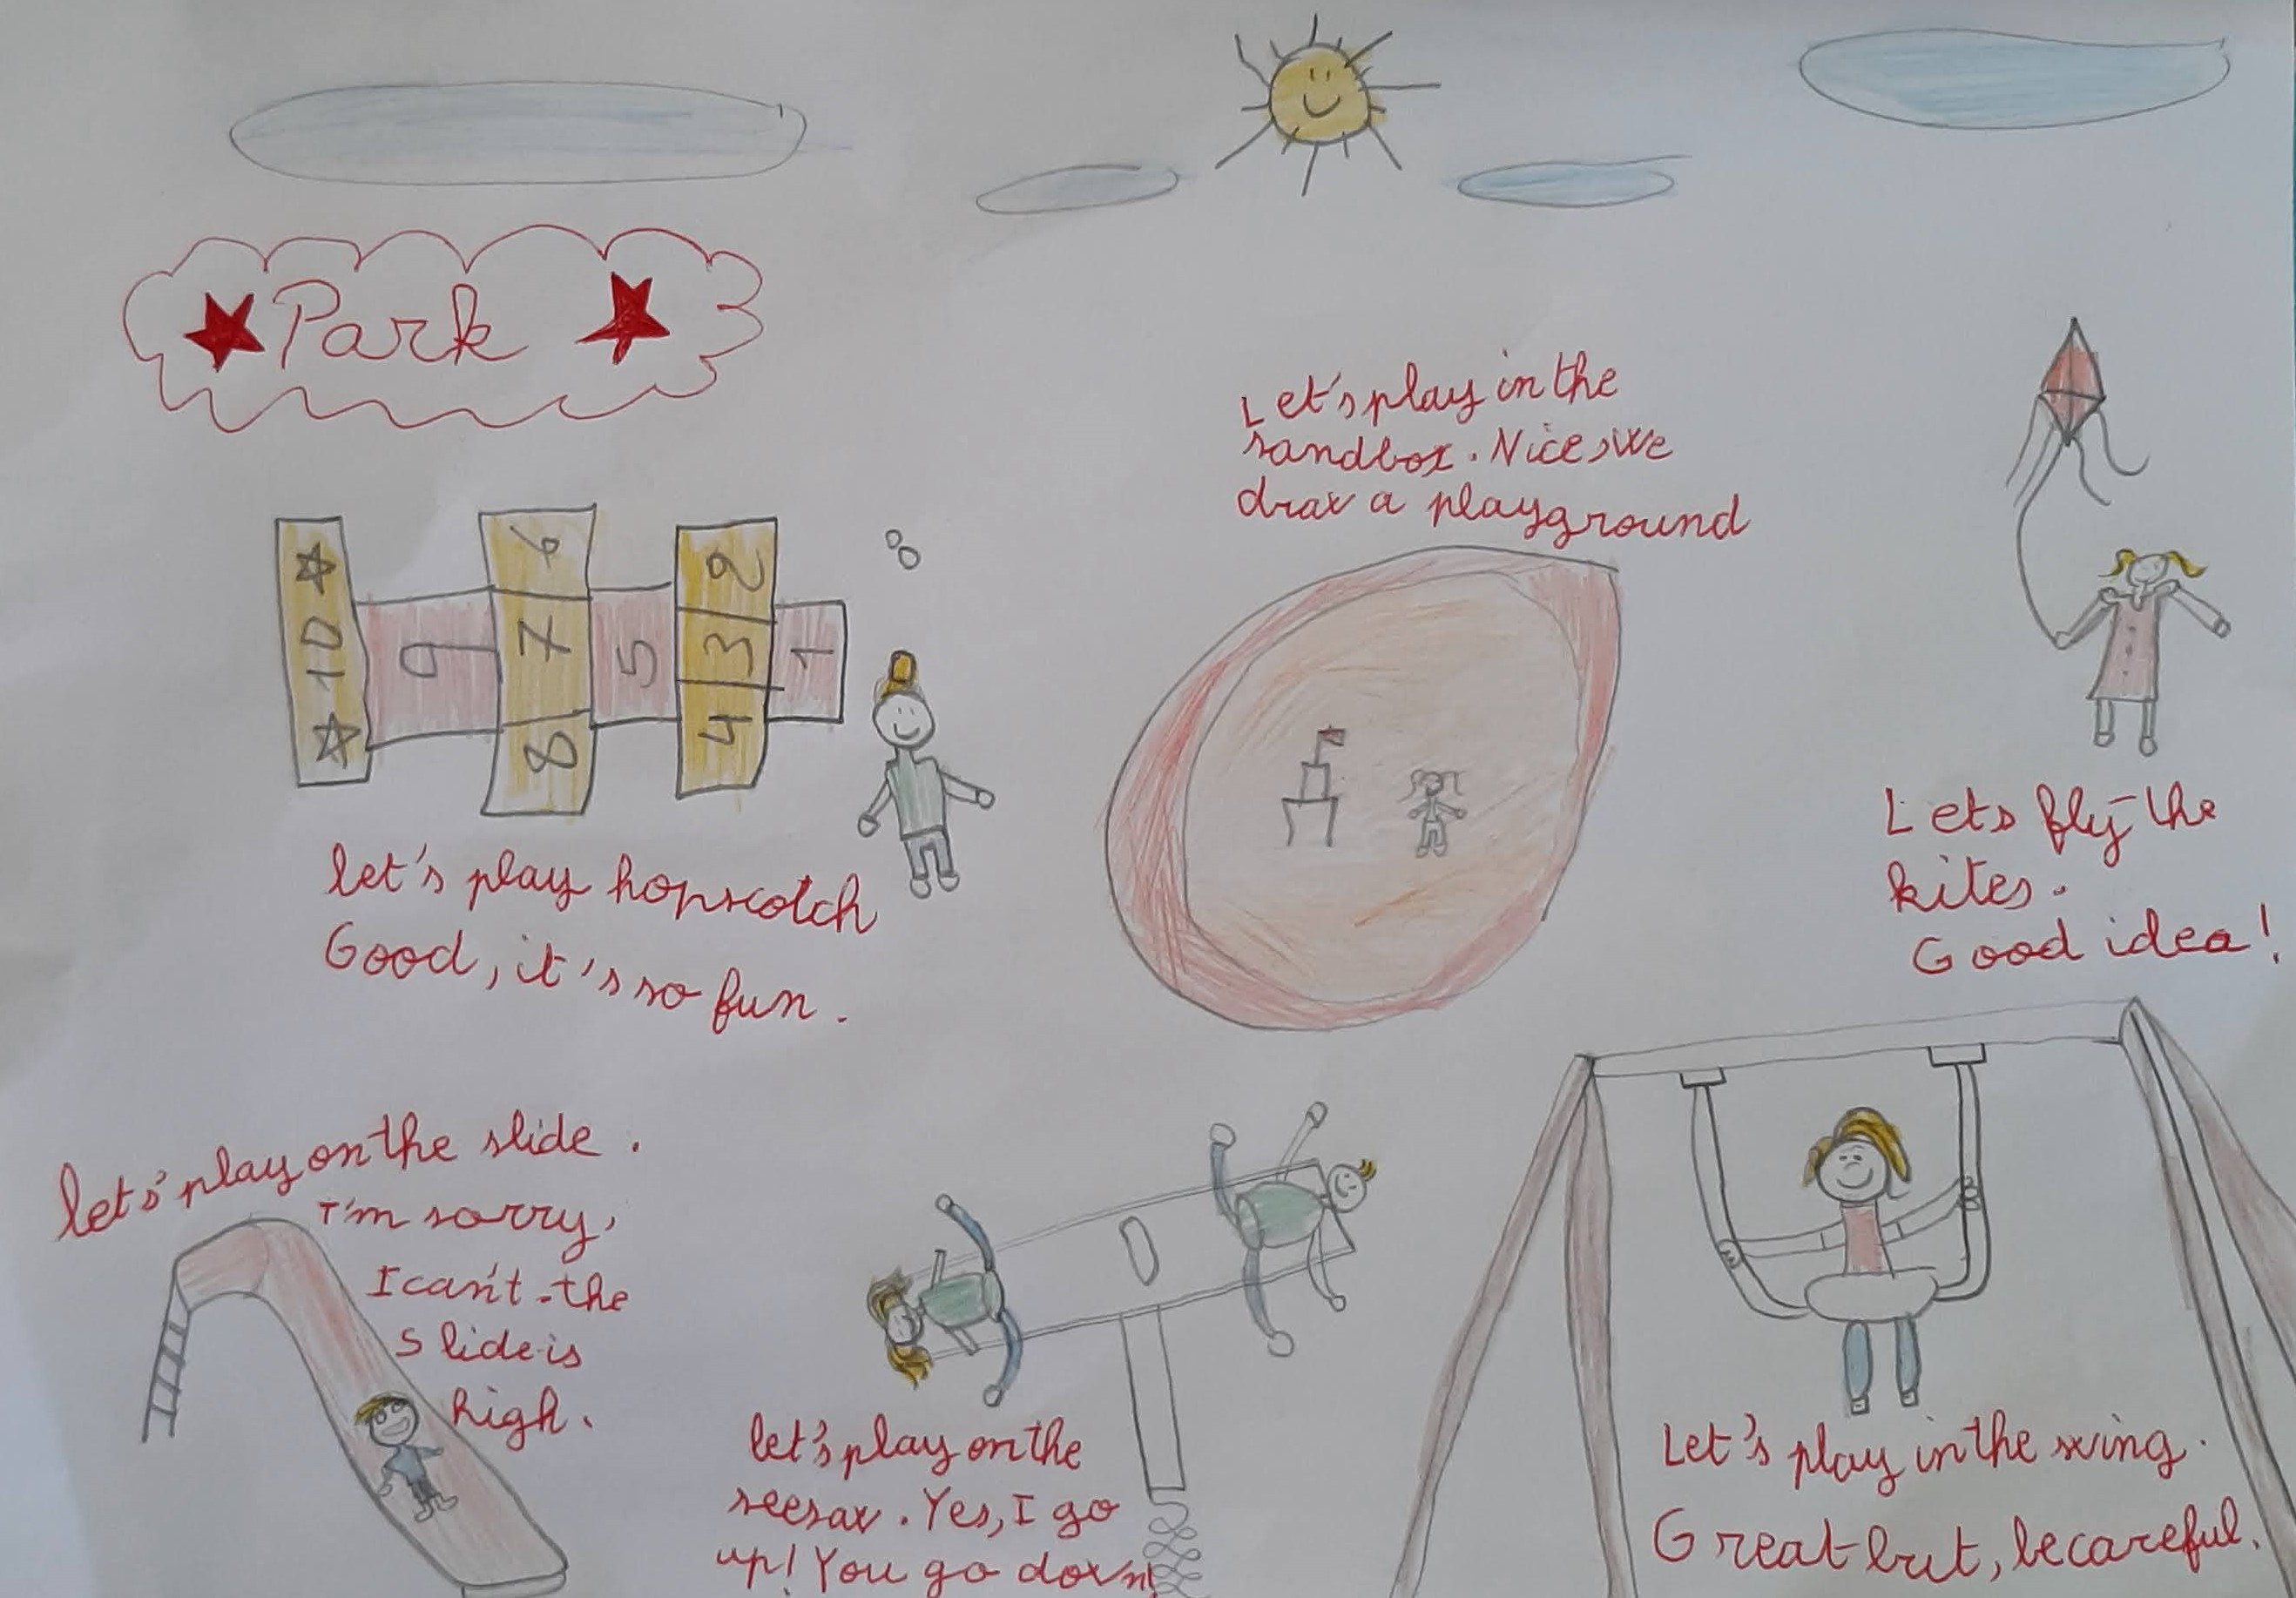 Park
Let's play in the
sandbox. Nice, we
draw a playground
10
9
6
7
8
5
2
3
4
1
let's play hopscotch
Good, it's so fun.
Lets fly the
kites.
Good idea!
lets' play on the slide.
I'm sorry,
I can't the
Slide is
high.
let's play on the
seesaw. Yes, I go
up! You go down!
Let's play in the swing.
Great but, be careful.